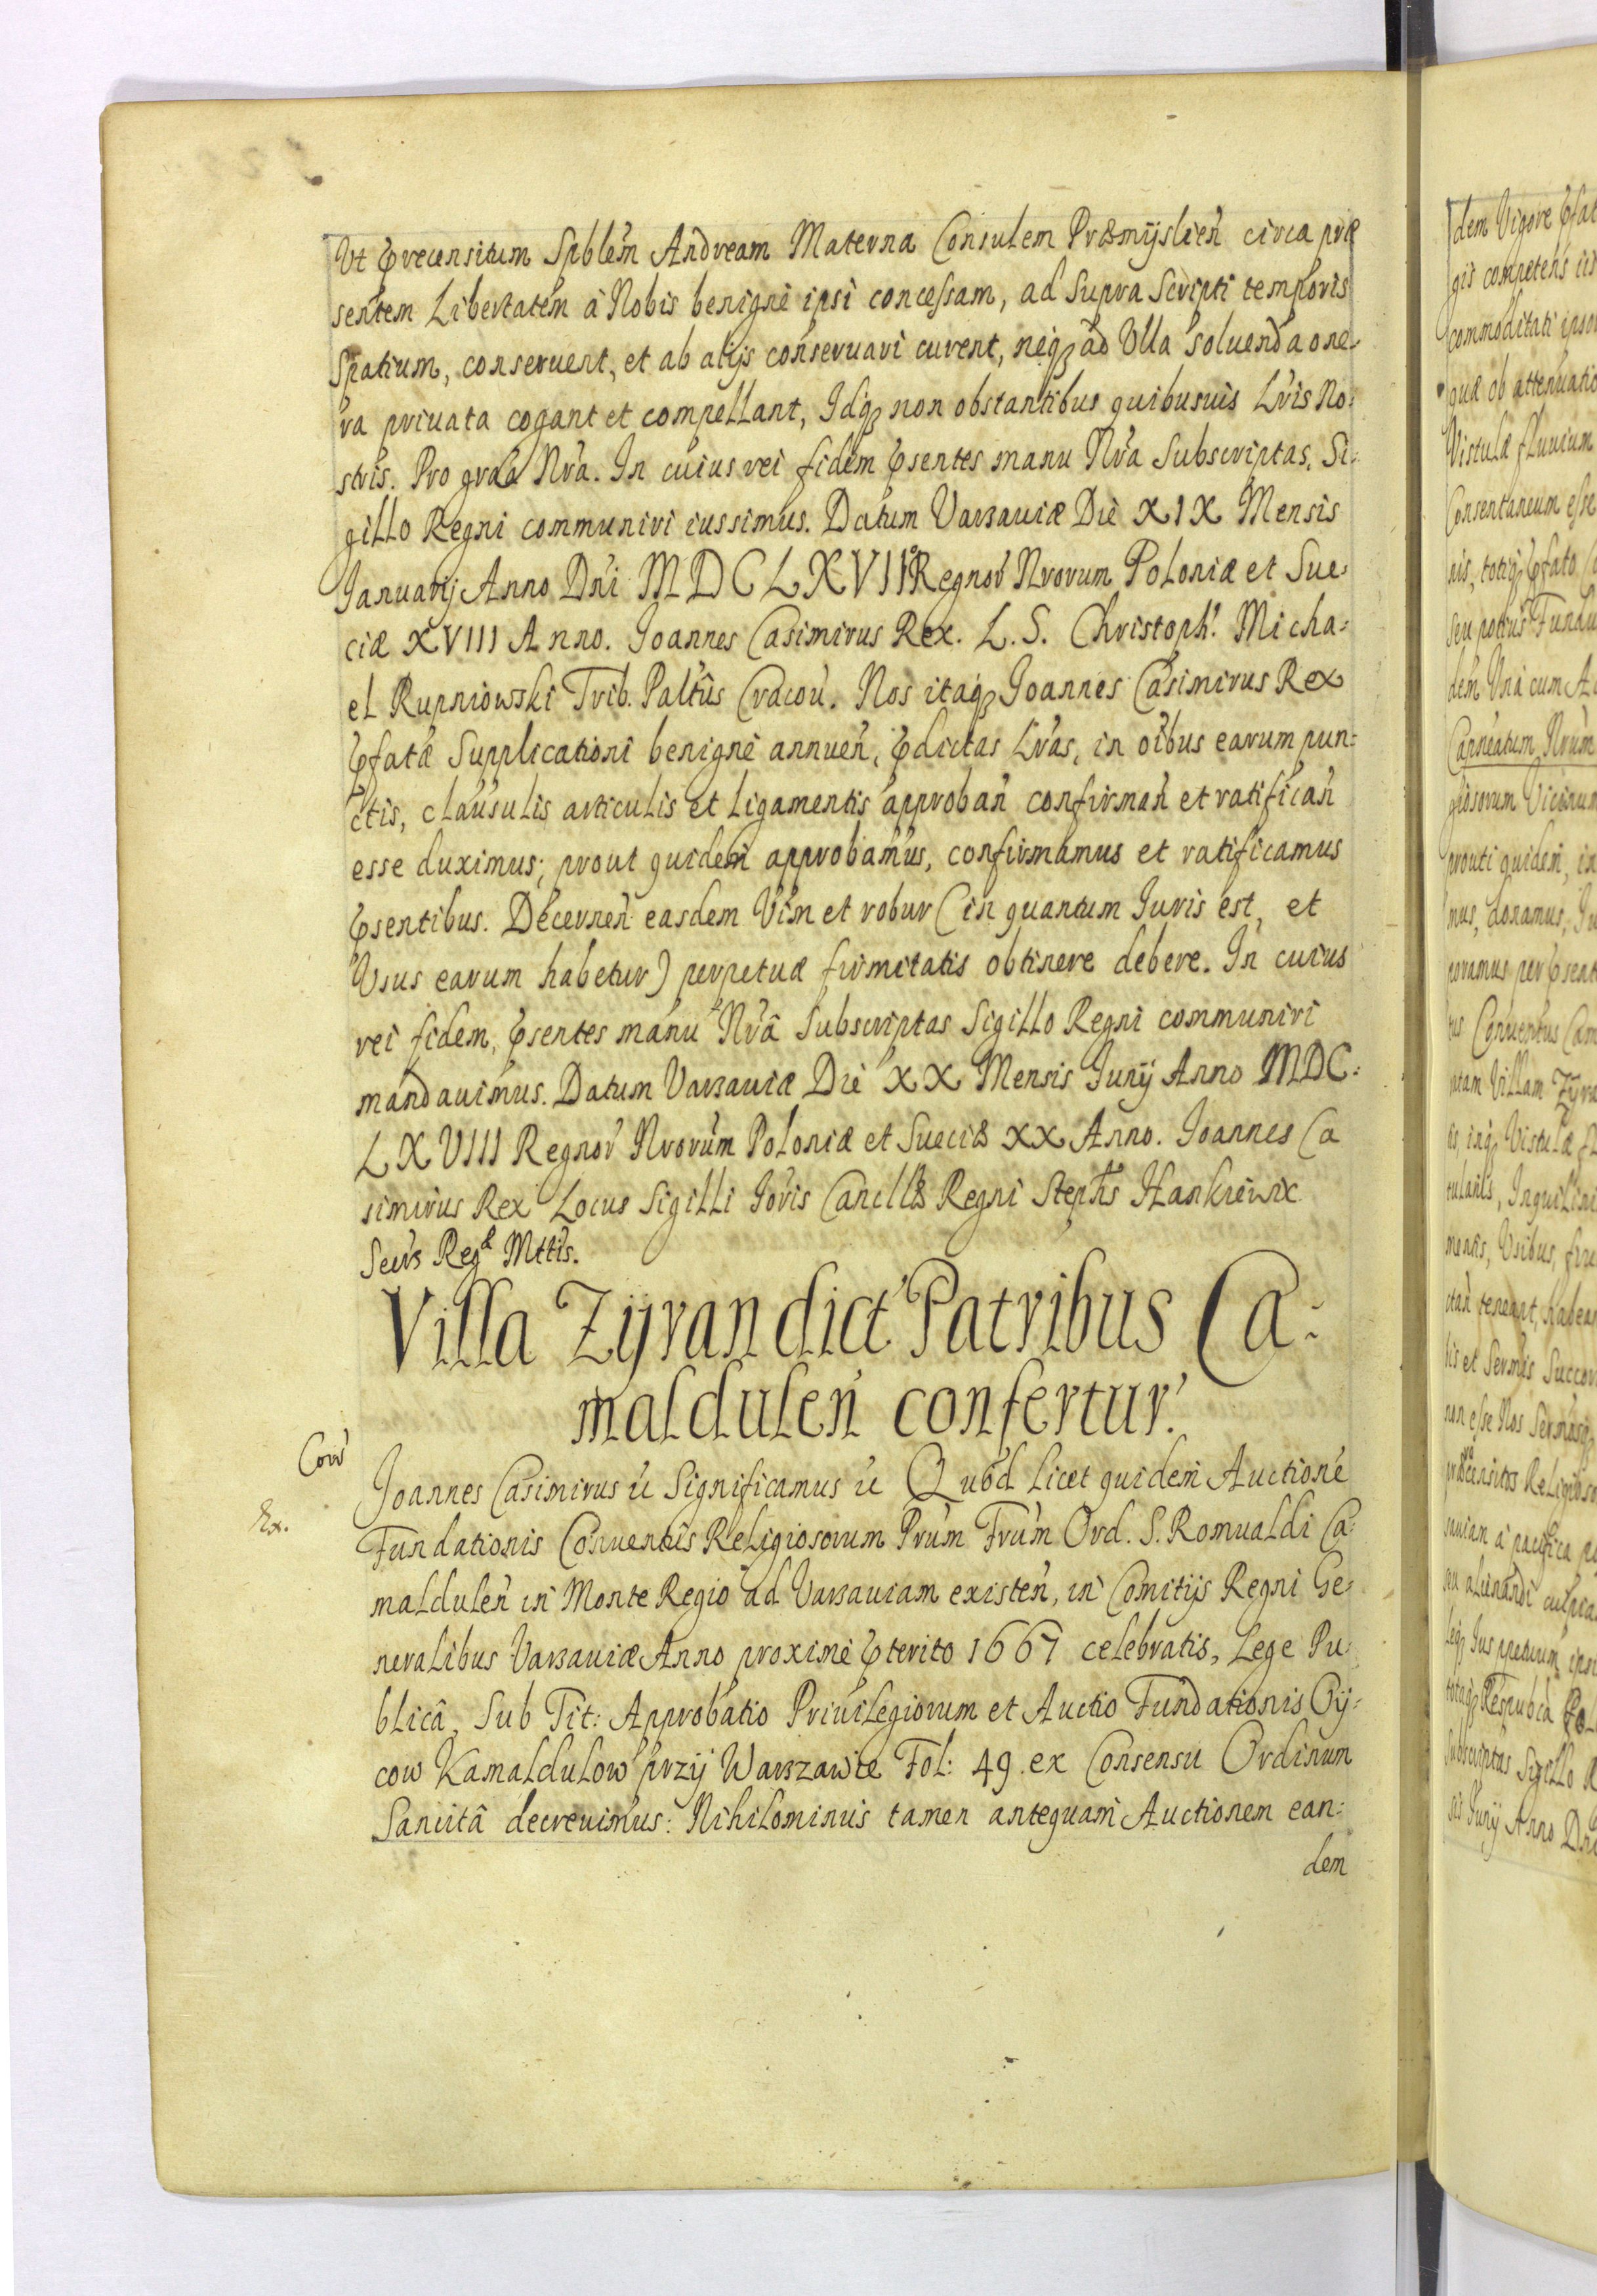 Ut Precensitum Spblem Andream Materna Consulem Præmyslieñ circa præ
sentem Libertatem à Nobis benignè ipsi concessam, ad supra scripti temporis
Spatium, conseruent, et ab alijs conseruari curent, neq₃ ad Vlla soluenda one-
ra priuata cogant et compellant, Idq₃ non obstantibus quibusuis Lris No-
stris. Pro grãa Nrã. In cuius rei fidem Psentes manu Nrã Subscriptas, Si-
gillo Regni communiri iussimus. Datum Varsauiæ Die XIX Mensis
Januarij Anno Dni MDCLXVII Regnor Nrorum Poloniæ et Sue-
ciæ XVIII Anno. Joannes Casimirus Rex. L.S. Christoph: Micha-
el Rupniowski Trib. Paltûs Cracou. Nos itaq₃ Joannes Casimirus Rex
Pfatæ Supplicationi benignè annueñ, Pdictas Lras, in oibus earum pun-
ctis, clausulis articulis et Ligamentis approbañ confirmañ et ratificañ
esse duximus; prout quidem approbamus, confirmamus et ratificamus
Psentibus. Decerneñ easdem Vim et robur (in quantum Juris est, et
Usus earum habetur) perpetuæ firmitatis obtinere debere. In cuius
rei fidem, Psentes manu Nrâ Subscriptas Sigillo Regni communiri
mandauimus. Datum Varsauiæ Die XX Mensis Junij Anno MDC-
LXVIII Regnor Nrorum Poloniæ et Sueciæ XX Anno. Joannes Ca
simirus Rex Locus Sigilli Joris Cancllæ Regni Stephs Hankiewix
Secrs Reg Mttis.
Villa Zÿran dict Patribus Ca-
malduleñ confertur.
Cow
Ex.
Joannes Casimirus ɛc Significamus ɛc Quod licet quidem Auctione
Fundationis Conuentûs Religiosorum Prum Frum Ord. S. Romualdi Ca-
malduleñ in Monte Regio ad Varsauiam existeñ, in Comitijs Regni Ge-
neralibus Varsauiæ Anno proximè Pterito 1667 celebratis, Lege Pu-
blicâ, Sub Tit: Approbatio Priuilegiorum et Auctio Fundationis Oÿ-
cow Kamaldulow przÿ Warszawie Fol: 49. ex Consensu Ordinum
Sancitâ decreuimus: Nihilominus tamen antequam Auctionem ean-
dem